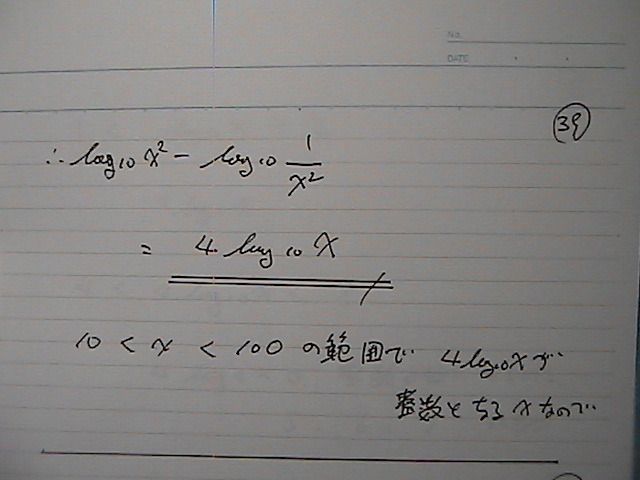 No.
DATE
39
∴ log10 x² − log10 1/x²
= 4 log10 x
10 < x < 100 の範囲で 4log10xが
整数となるxなので